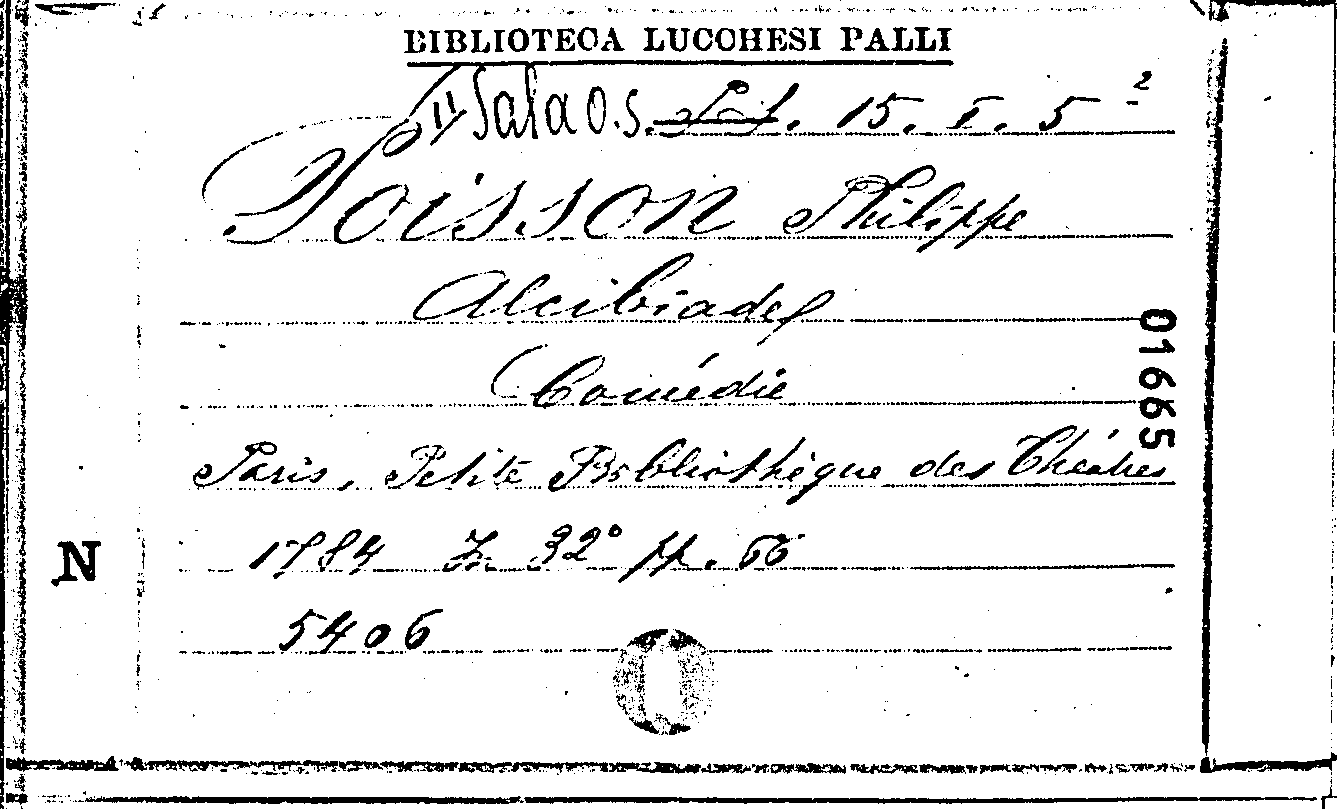 BIBLIOTECA LUCCHESI PALLI
Sala O.S. 15. I. 5 2
Poisson Philippe
Alcibiades
Comédie
Paris, Petite Bibliothéque des Théatres
1784 In 32° pp. 66
5406
N
01665